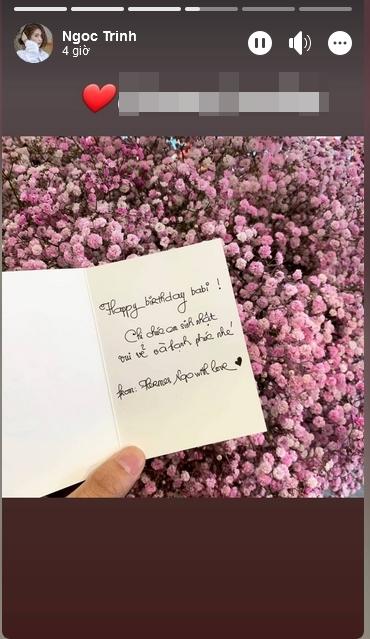 Ngoc Trinh
4 giờ
Happy birthday babi !
Chị chúc em sinh nhật
vui vẻ và hạnh phúc nhé!
from: with love ♥